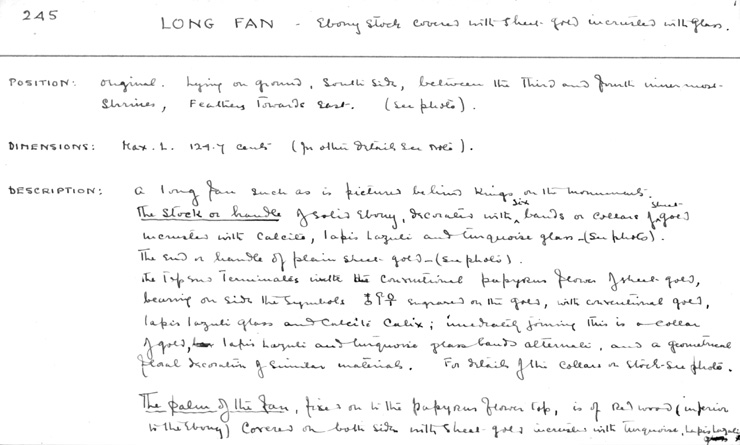 245
LONG FAN - Ebony Stock covered with sheet-gold incrusted with glass.
POSITION: Original. Lying on ground, South Side, between the Third and fourth innermost-
Shrines, Feathers Towards East. (See photo).
DIMENSIONS: Max. L. 124.7 cents (For other details see note).
DESCRIPTION: A long fan such as is pictured behind Kings, on the monuments.
The Stock or handle of solid Ebony, decorated with six bands or collars of sheet- gold
incrusted with calcite, lapis lazuli and turquoise glass - (See photo).
The end or handle of plain sheet-gold - (See photo).
The Top end Terminates with the conventional papyrus flower of sheet-gold,
bearing on side the symbols engraved on the gold, with conventional gold,
lapis lazuli glass and calcite calix; immediately joining this is a collar
of gold, lapis lazuli and turquoise glass bands alternate, and a geometrical
floral decoration of similar materials. For details of the collars on Stock - See photo.
The palm of the fan, fixed on to the papyrus flower top, is of Red wood (inferior
to the Ebony) covered on both sides with sheet-gold incrusted with turquoise, lapis lazuli